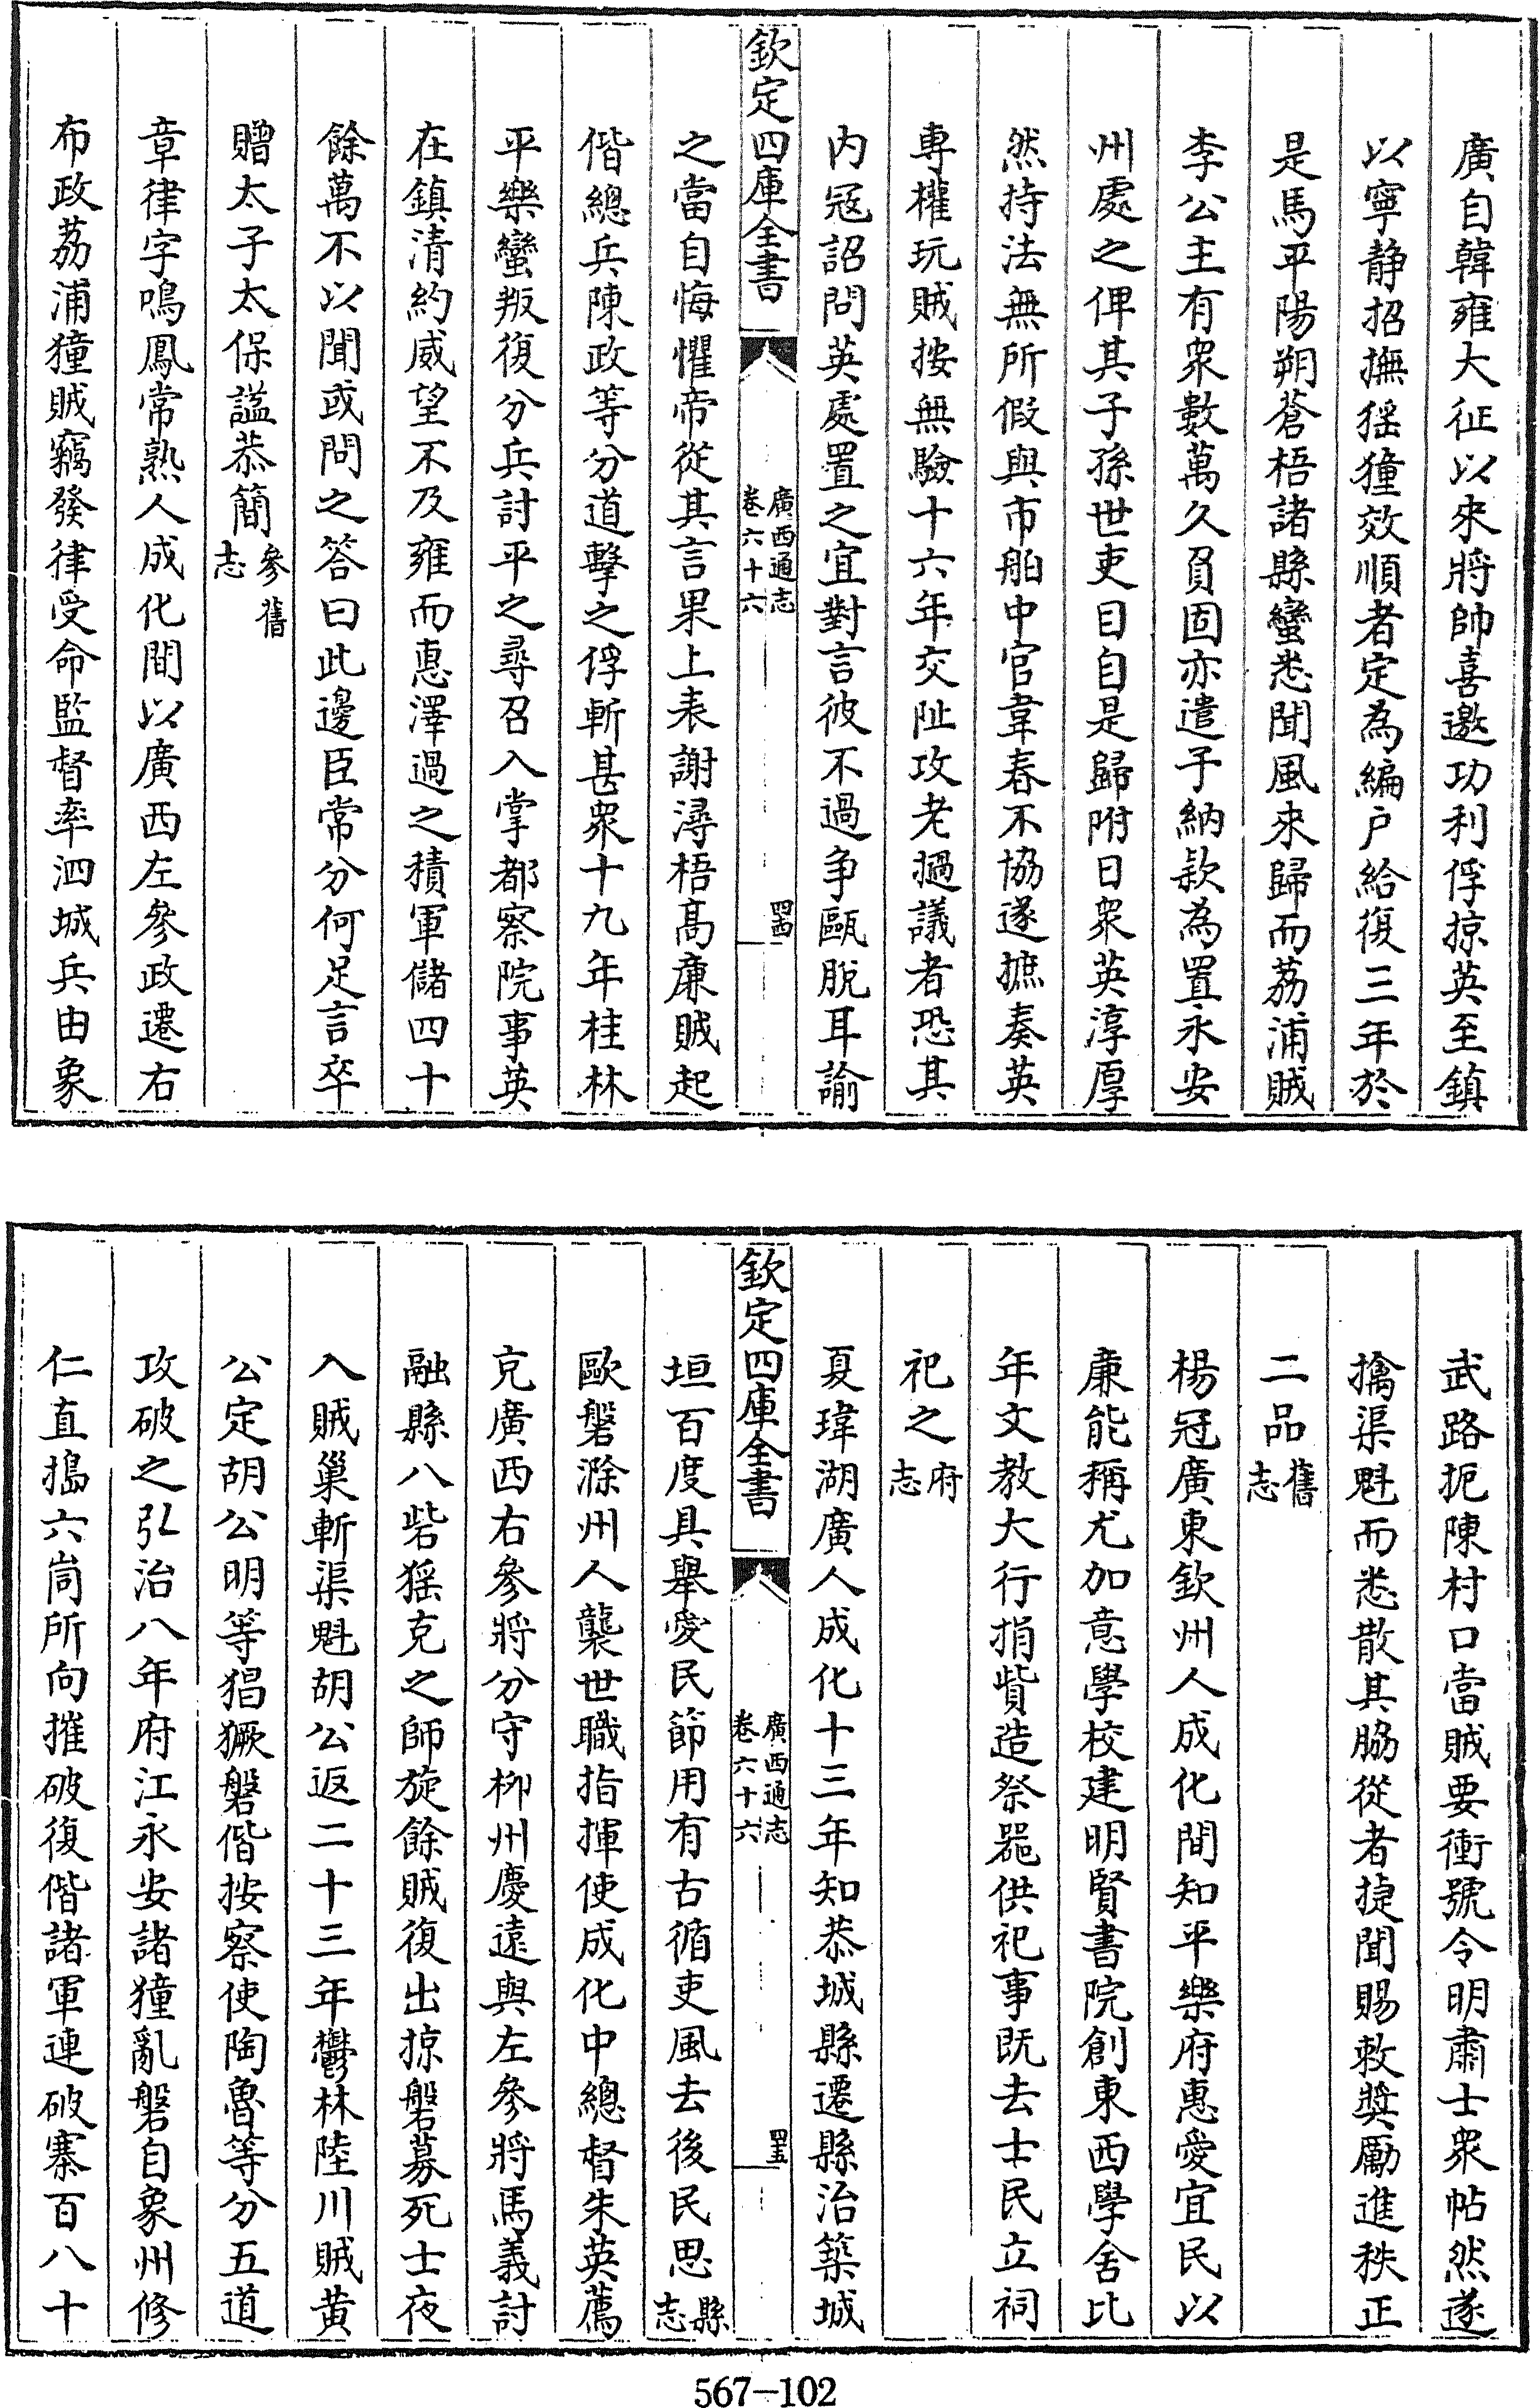 廣自韓雍大征以來將帥喜邀功利俘掠英至鎮
以寧静招撫猺獞效順者定為編户給復三年於
是馬平陽朔蒼梧諸縣蠻悉聞風來歸而荔浦賊
李公主有衆數萬久負固亦遣子納款為置永安
州處之俾其子孫世吏目自是歸附日衆英淳厚
然持法無所假與市舶中官韋眷不協遂摭奏英
專權玩賊按無驗十六年交阯攻老撾議者恐其
内寇詔問英處置之宜對言彼不過争甌脫耳諭
欽定四庫全書
廣西通志
卷六十六
四四
之當自悔懼帝從其言果上表謝潯梧高廉賊起
偕總兵陳政等分道擊之俘斬甚衆十九年桂林
平樂蠻叛復分兵討平之尋召入掌都察院事英
在鎮清約威望不及雍而惠澤過之積軍儲四十
餘萬不以聞或問之答曰此邊臣常分何足言卒
贈太子太保謚恭簡參舊志
章律字鳴鳳常熟人成化間以廣西左參政遷右
布政荔浦獞賊竊發律受命監督率泗城兵由象
武路扼陳村口當賊要衝號令明肅士衆帖然遂
擒渠魁而悉散其脇從者捷聞賜敕奬勵進秩正
二品舊志
楊冠廣東欽州人成化間知平樂府惠愛宜民以
廉能稱尤加意學校建明賢書院創東西學舍比
年文教大行捐貲造祭器供祀事既去士民立祠
祀之府志
夏瑋湖廣人成化十三年知恭城縣遷縣治築城
欽定四庫全書
廣西通志
卷六十六
四五
垣百度具舉愛民節用有古循吏風去後民思縣志
歐磐滁州人襲世職指揮使成化中總督朱英薦
充廣西右參將分守柳州慶遠與左參將馬義討
融縣八砦猺克之師旋餘賊復出掠磐募死士夜
入賊巢斬渠魁胡公返二十三年鬱林陸川賊黄
公定胡公明等猖獗磐偕按察使陶魯等分五道
攻破之弘治八年府江永安諸獞亂磐自象州修
仁直搗六峝所向摧破復偕諸軍連破寨百八十
567—102